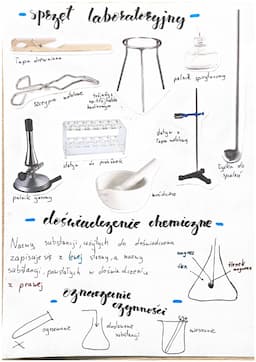 - sprzęt laboratoryjny -
Łapa drewniana
palnik spirytusowy
szczypce metalowe
trójnóg
statyw z
łapą metalową
łyżka do
spalań
statyw do probówek
palnik gazowy
moździerz
- doświadczenie chemiczne -
Nazwy substancji, użytych do doświadczenia
zapisuje się z lewej strony, a nazwy
substancji, powstałych w doświadczeniu
z prawej
magnez
tlen
tlenek
magnezu
- oznaczanie
czynności -
ogrzewanie
dodawanie
substancji
mieszanie